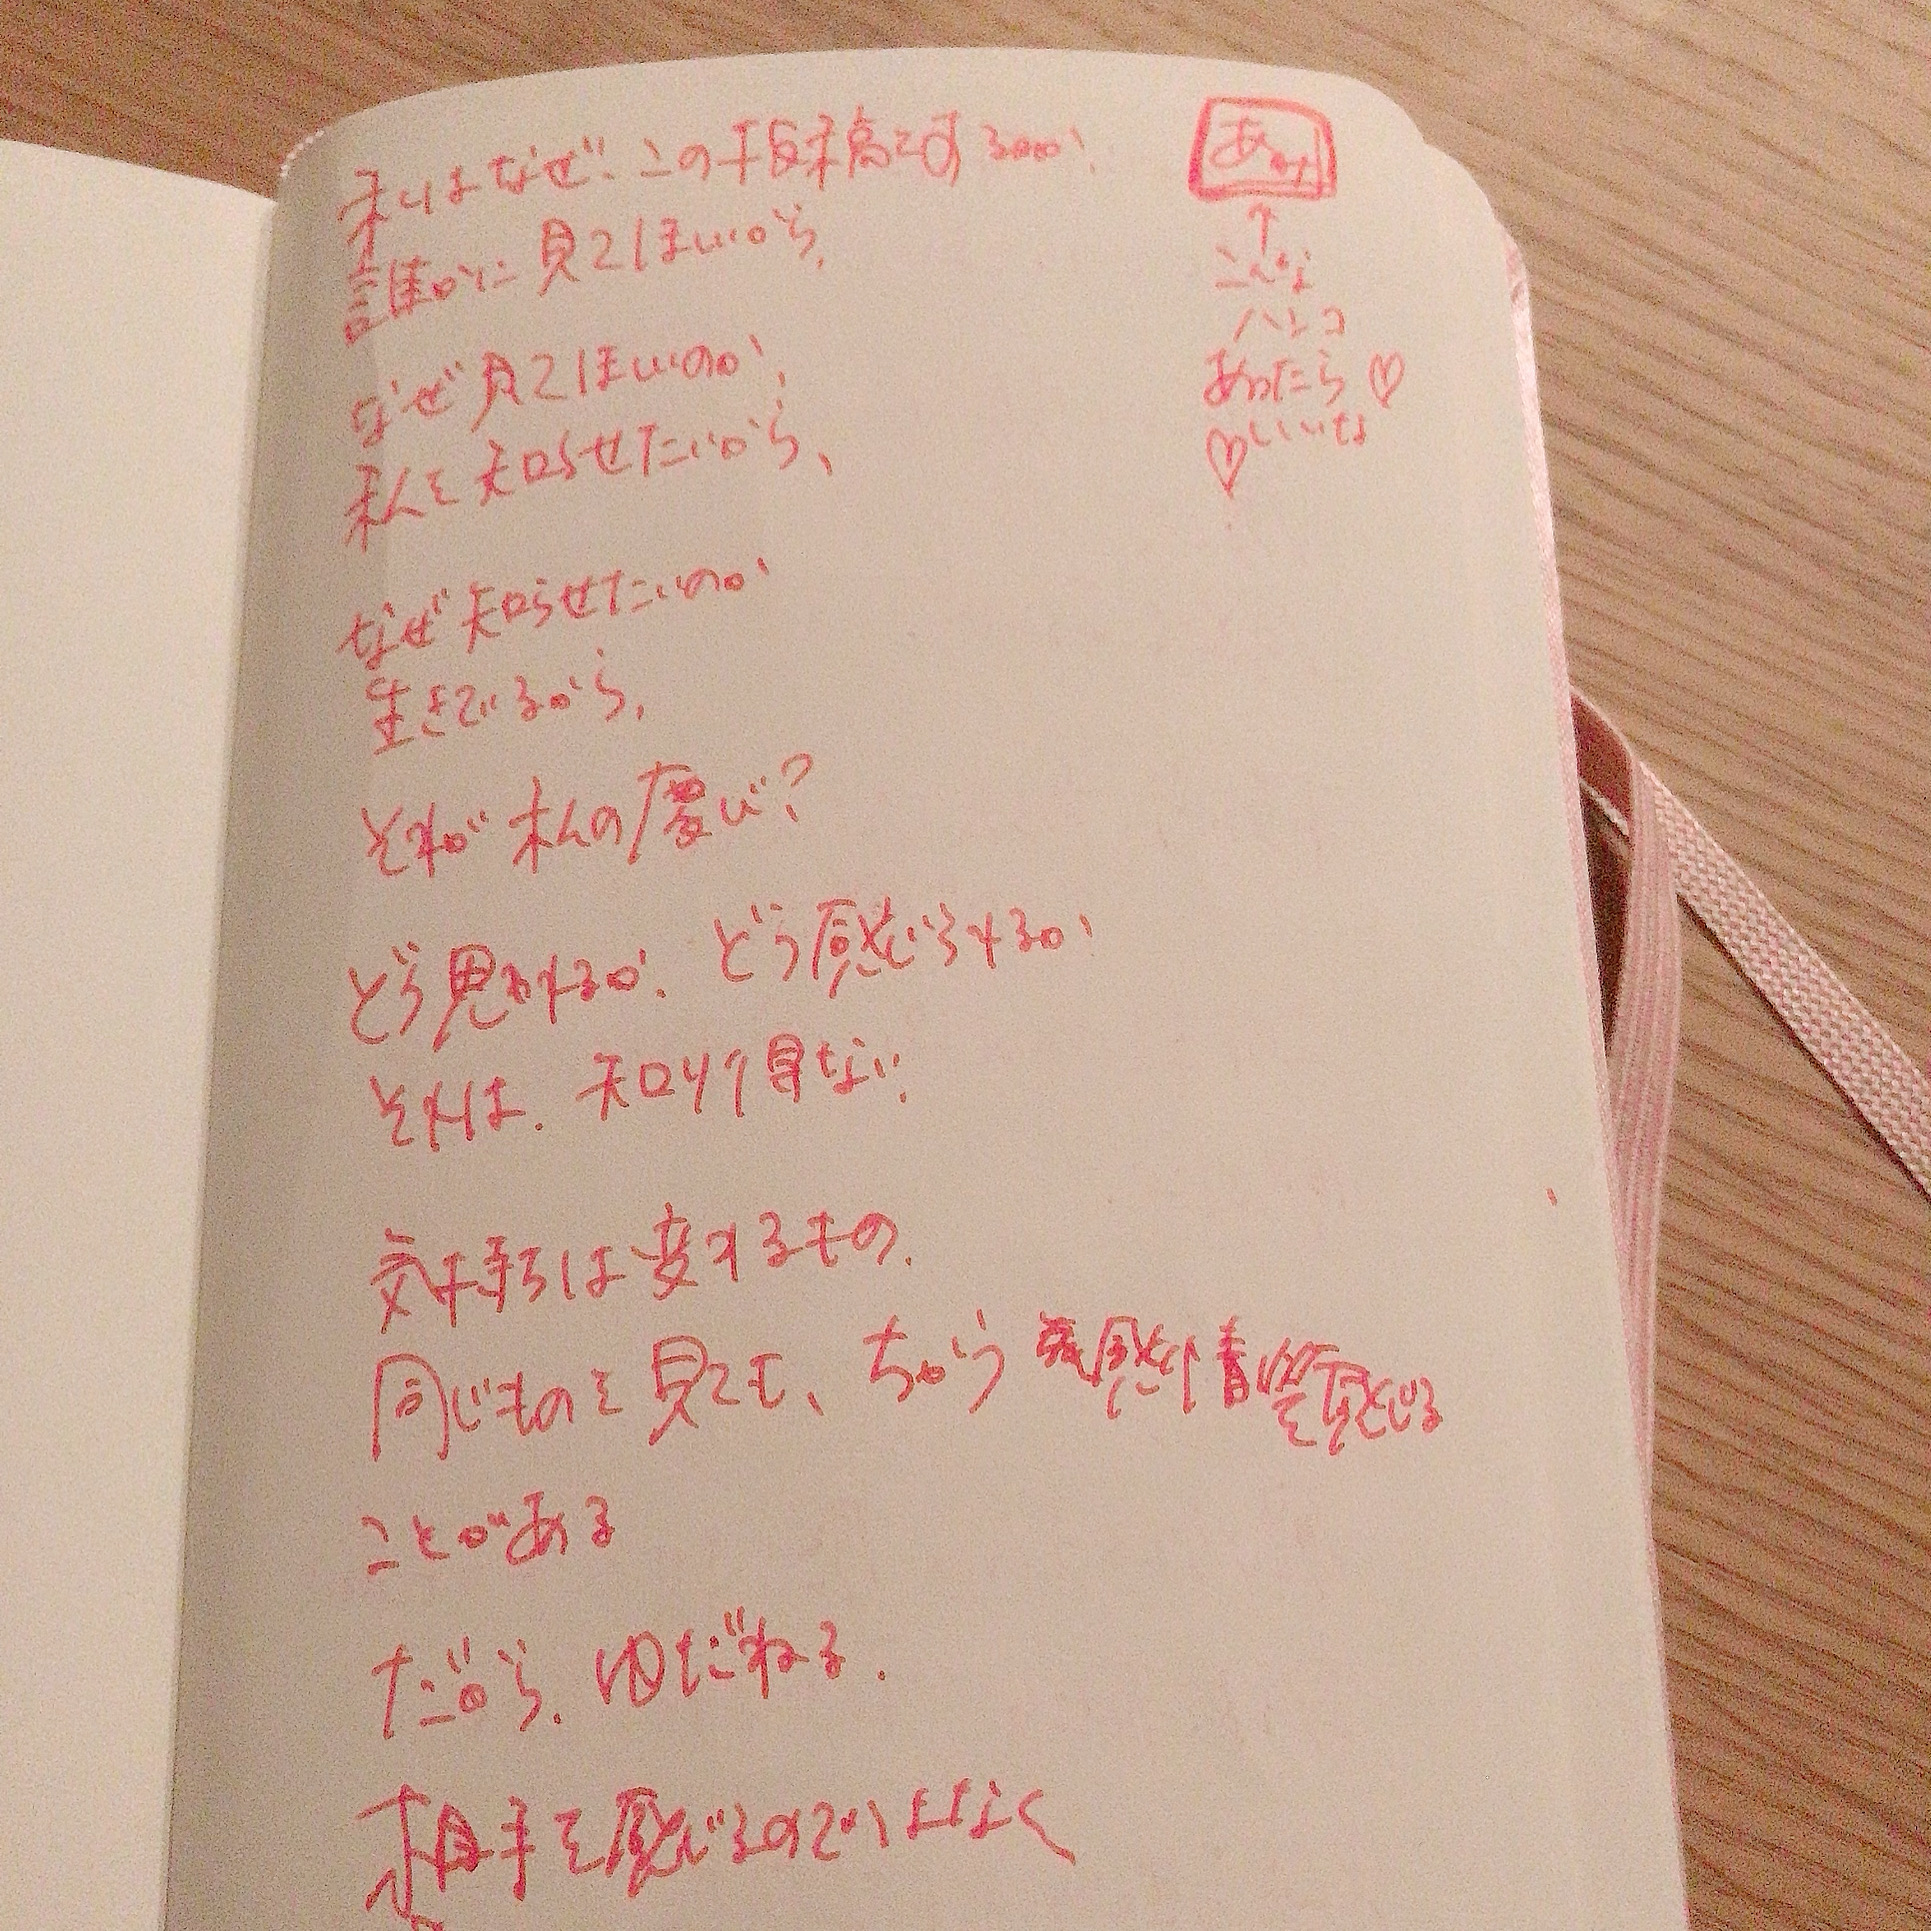 私はなぜ、この投稿をするのか、
誰かに見てほしいから、
なぜ見てほしいのか、
私を知らせたいから、
なぜ知らせたいのか
生きているから、
それが私の慶び?
どう思われるか、どう感じられるか、
それは、知り得ない、
気持ちは変わるもの、
同じものを見ても、ちがう 感情を感じる
ことがある
だから、ゆだねる、
相手を感じるのではなく
↑
こんな
ハンコ
あったら♡
♡いいな